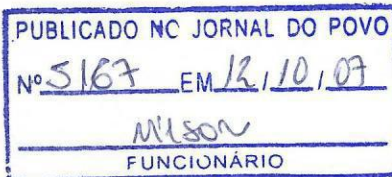 PUBLICADO NO JORNAL DO POVO
Nº 5167 EM 12, 10, 07
Nilson
FUNCIONÁRIO